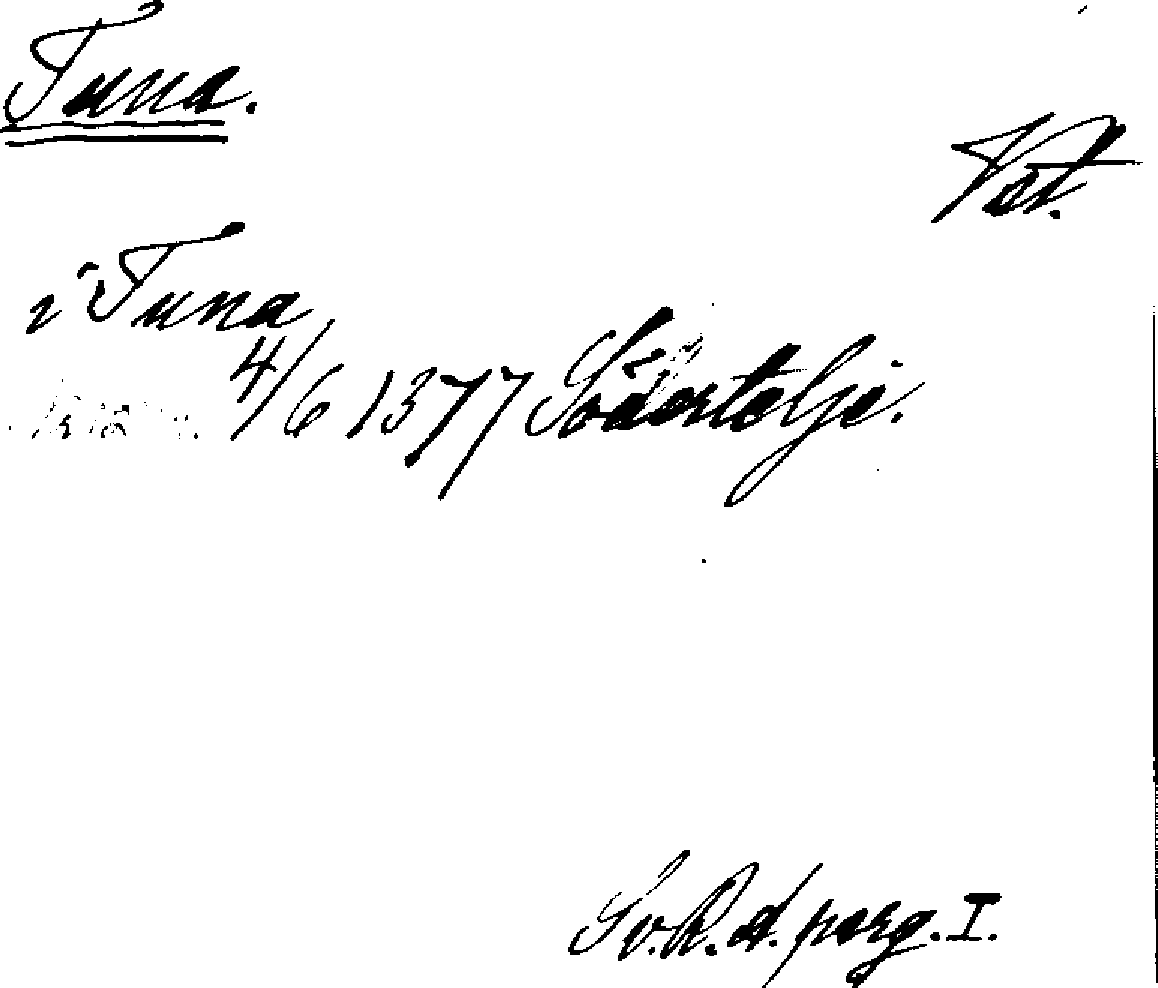 Tuna.
Vst.
i Tuna
4/6 1377 Södertelje.
Sv. R. A. perg. I.